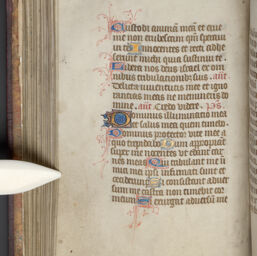 Custodi animam meam et erue
me non erubescam qm speraui
in te Innocentes et recti adhe
serunt michi quia sustinui te
Libera nos deus israel ex om
nibus tribulationibz suis. ant
Delicta iuuentutis mee et igno
rantias meas ne memineris do
mine. ant Credo videre. ps.
Dominus illuminatio mea
et salus mea quem timebo.
Dominus protector vite mee a
quo trepidabo Dum appropiant
super me nocentes ut edant car
nes meas Qui tribulant me ini
mici mei ipsi infirmati sunt et
ceciderunt Si consistant aduer
sum me castra non timebit cor
meum Si exurgat aduersum me